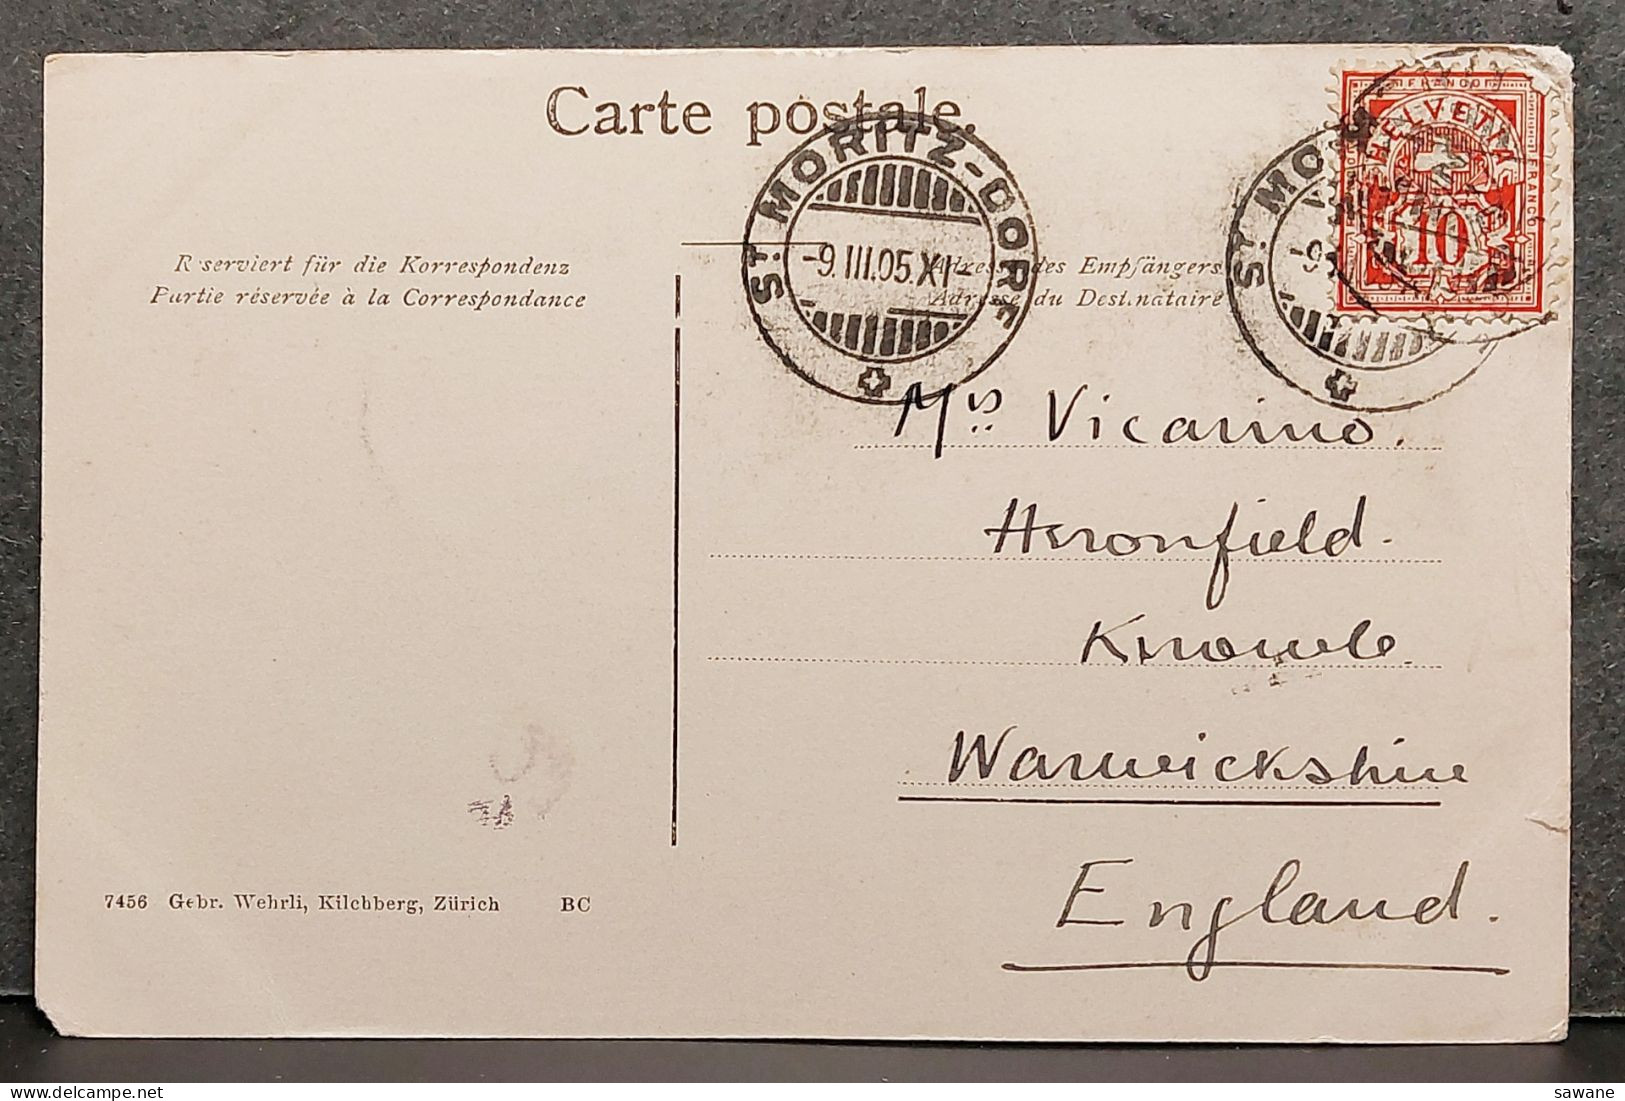 Carte postale.
ST. MORITZ-DORF
-9.III.05.XI-
ST. MO
-9
FRANCO
HELVETIA
FRANCO
10
Reserviert für die Korrespondenz
Partie réservée à la Correspondance
Adresse des Empfängers
Adresse du Destinataire
Mrs Vicarino.
Heronfield.
Knowle.
Warwickshire
England.
7456 Gebr. Wehrli, Kilchberg, Zürich BC
sawane